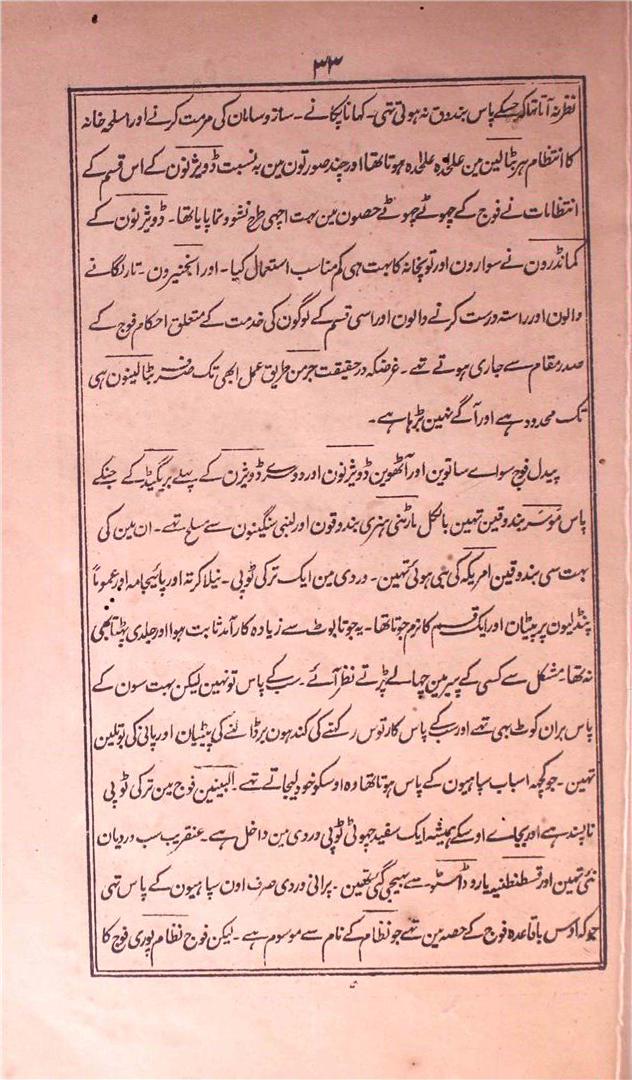 ۳۳
نظر نہ آتا تھا کہ جسکے پاس بندوق نہ ہوتی تہی۔ کہانا پکانے۔ سازوسامان کی مرمت کرنے اور اسلحہ خانہ
کا انتظام ہر بٹالین مین علحدہ علحدہ ہوتا تھا اور چند صورتون مین بہ نسبت ڈویژنون کے اس قسم کے
انتظامات نے فوج کے چھوٹے چھوٹے حصون مین بہت اچھی طرح نشوونما پایا تھا۔ ڈویژنون کے
کمانڈرون نے سوارون اور توپخانہ کا بہت ہی کم مناسب استعمال کیا۔ اور انجنیرون۔ تار لگانے
والون اور راستہ درست کرنے والون اور اسی قسم کے لوگون کی خدمت کے متعلق احکام فوج کے
صدر مقام سے جاری ہوتے تہے۔ غرضکہ درحقیقت جرمن طریق عمل ابھی تک صرف بٹالینون ہی
تک محدود ہے اور آگے نہین بڑہا ہے۔
پیدل فوج سواے ساتوین اور آٹھوین ڈویژنون اور دوسرے ڈویژن کے پہلے بریگیڈ کے جنکے
پاس موسر بندوقین تہین بالکل مارٹنی ہنری بندوقون اور لمبی سنگینون سے مسلح تہے۔ ان مین کی
بہت سی بندوقین امریکہ کی بنی ہوئی تہین۔ وردی مین ایک ترکی ٹوپی۔ نیلا کرتہ اور پائیجامہ اور عموماً
پنڈلیون پر پٹیان اور ایک قسم کا نرم جوتا تھا۔ یہ جوتا بوٹ سے زیادہ کارآمد ثابت ہوا اور جلدی پہٹتا بھی
نہ تھا۔ مشکل سے کسی کے پیر مین چہالے پڑتے نظر آئے۔ سب کے پاس تو نہین لیکن بہت سون کے
پاس بران کوٹ بہی تہے اور سب کے پاس کارتوس رکہنے کی کندہون پر ڈالنے کی پیٹیان اور پانی کی بوتلین
تہین۔ جو کچہہ اسباب سپاہیون کے پاس ہوتا تھا وہ اوسکو خود لیجاتے تہے۔ البینین فوج مین ترکی ٹوپی
ناپسند ہے اور بجاے اوسکے ہمیشہ ایک سفید چھوٹی ٹوپی وردی مین داخل ہے۔ عنقریب سب وردیان
نئی تہین اور قسطنطنیہ یا روڈاسٹو سے بھیجی گئی تھین۔ پرانی وردی صرف اون سپاہیون کے پاس تہی
جو کہ اوس باقاعدہ فوج کے حصہ مین تہے جو نظام کے نام سے موسوم ہے۔ لیکن فوج نظام پوری فوج کا